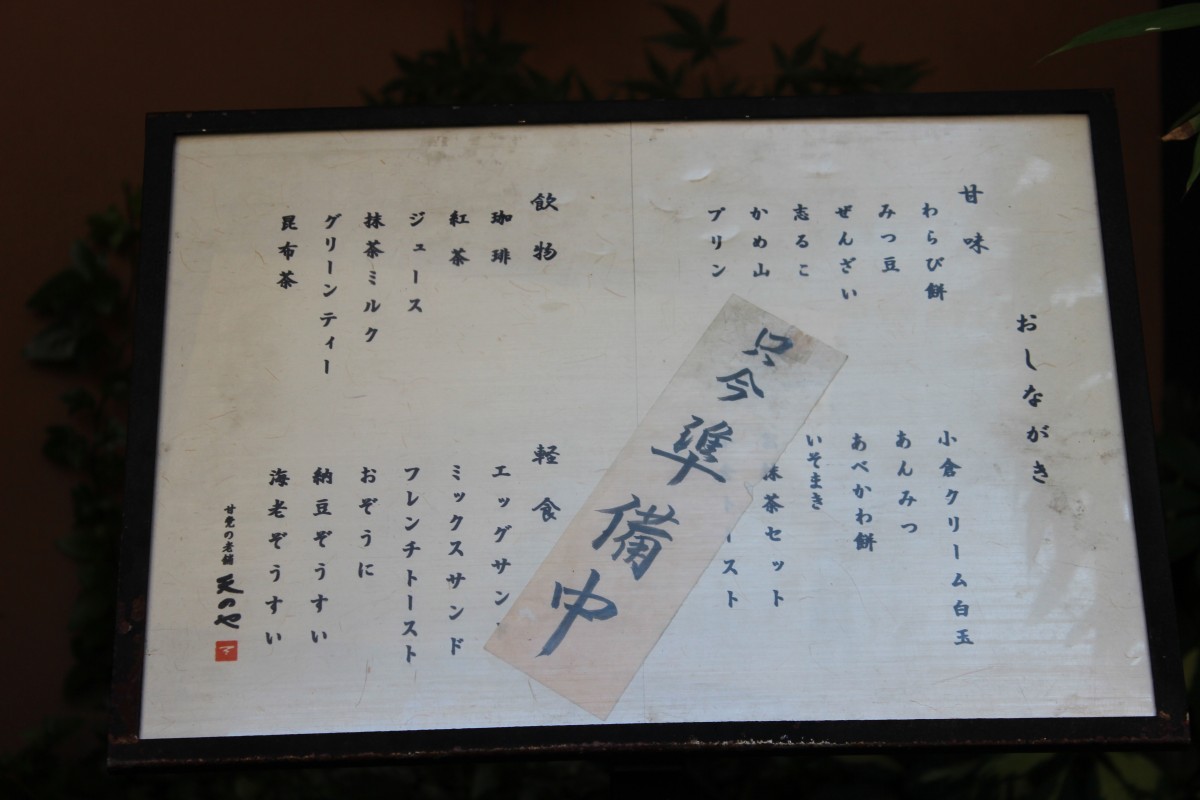 おしながき
甘味
わらび餅
みつ豆
ぜんざい
志るこ
かめ山
プリン
小倉クリーム白玉
あんみつ
あべかわ餅
いそまき
茶セット
スト
只今準備中
飲物
珈琲
紅茶
ジュース
抹茶ミルク
グリーンティー
昆布茶
軽食
エッグサン
ミックスサンド
フレンチトースト
おぞうに
納豆ぞうすい
海老ぞうすい
甘党の老舗
天のや